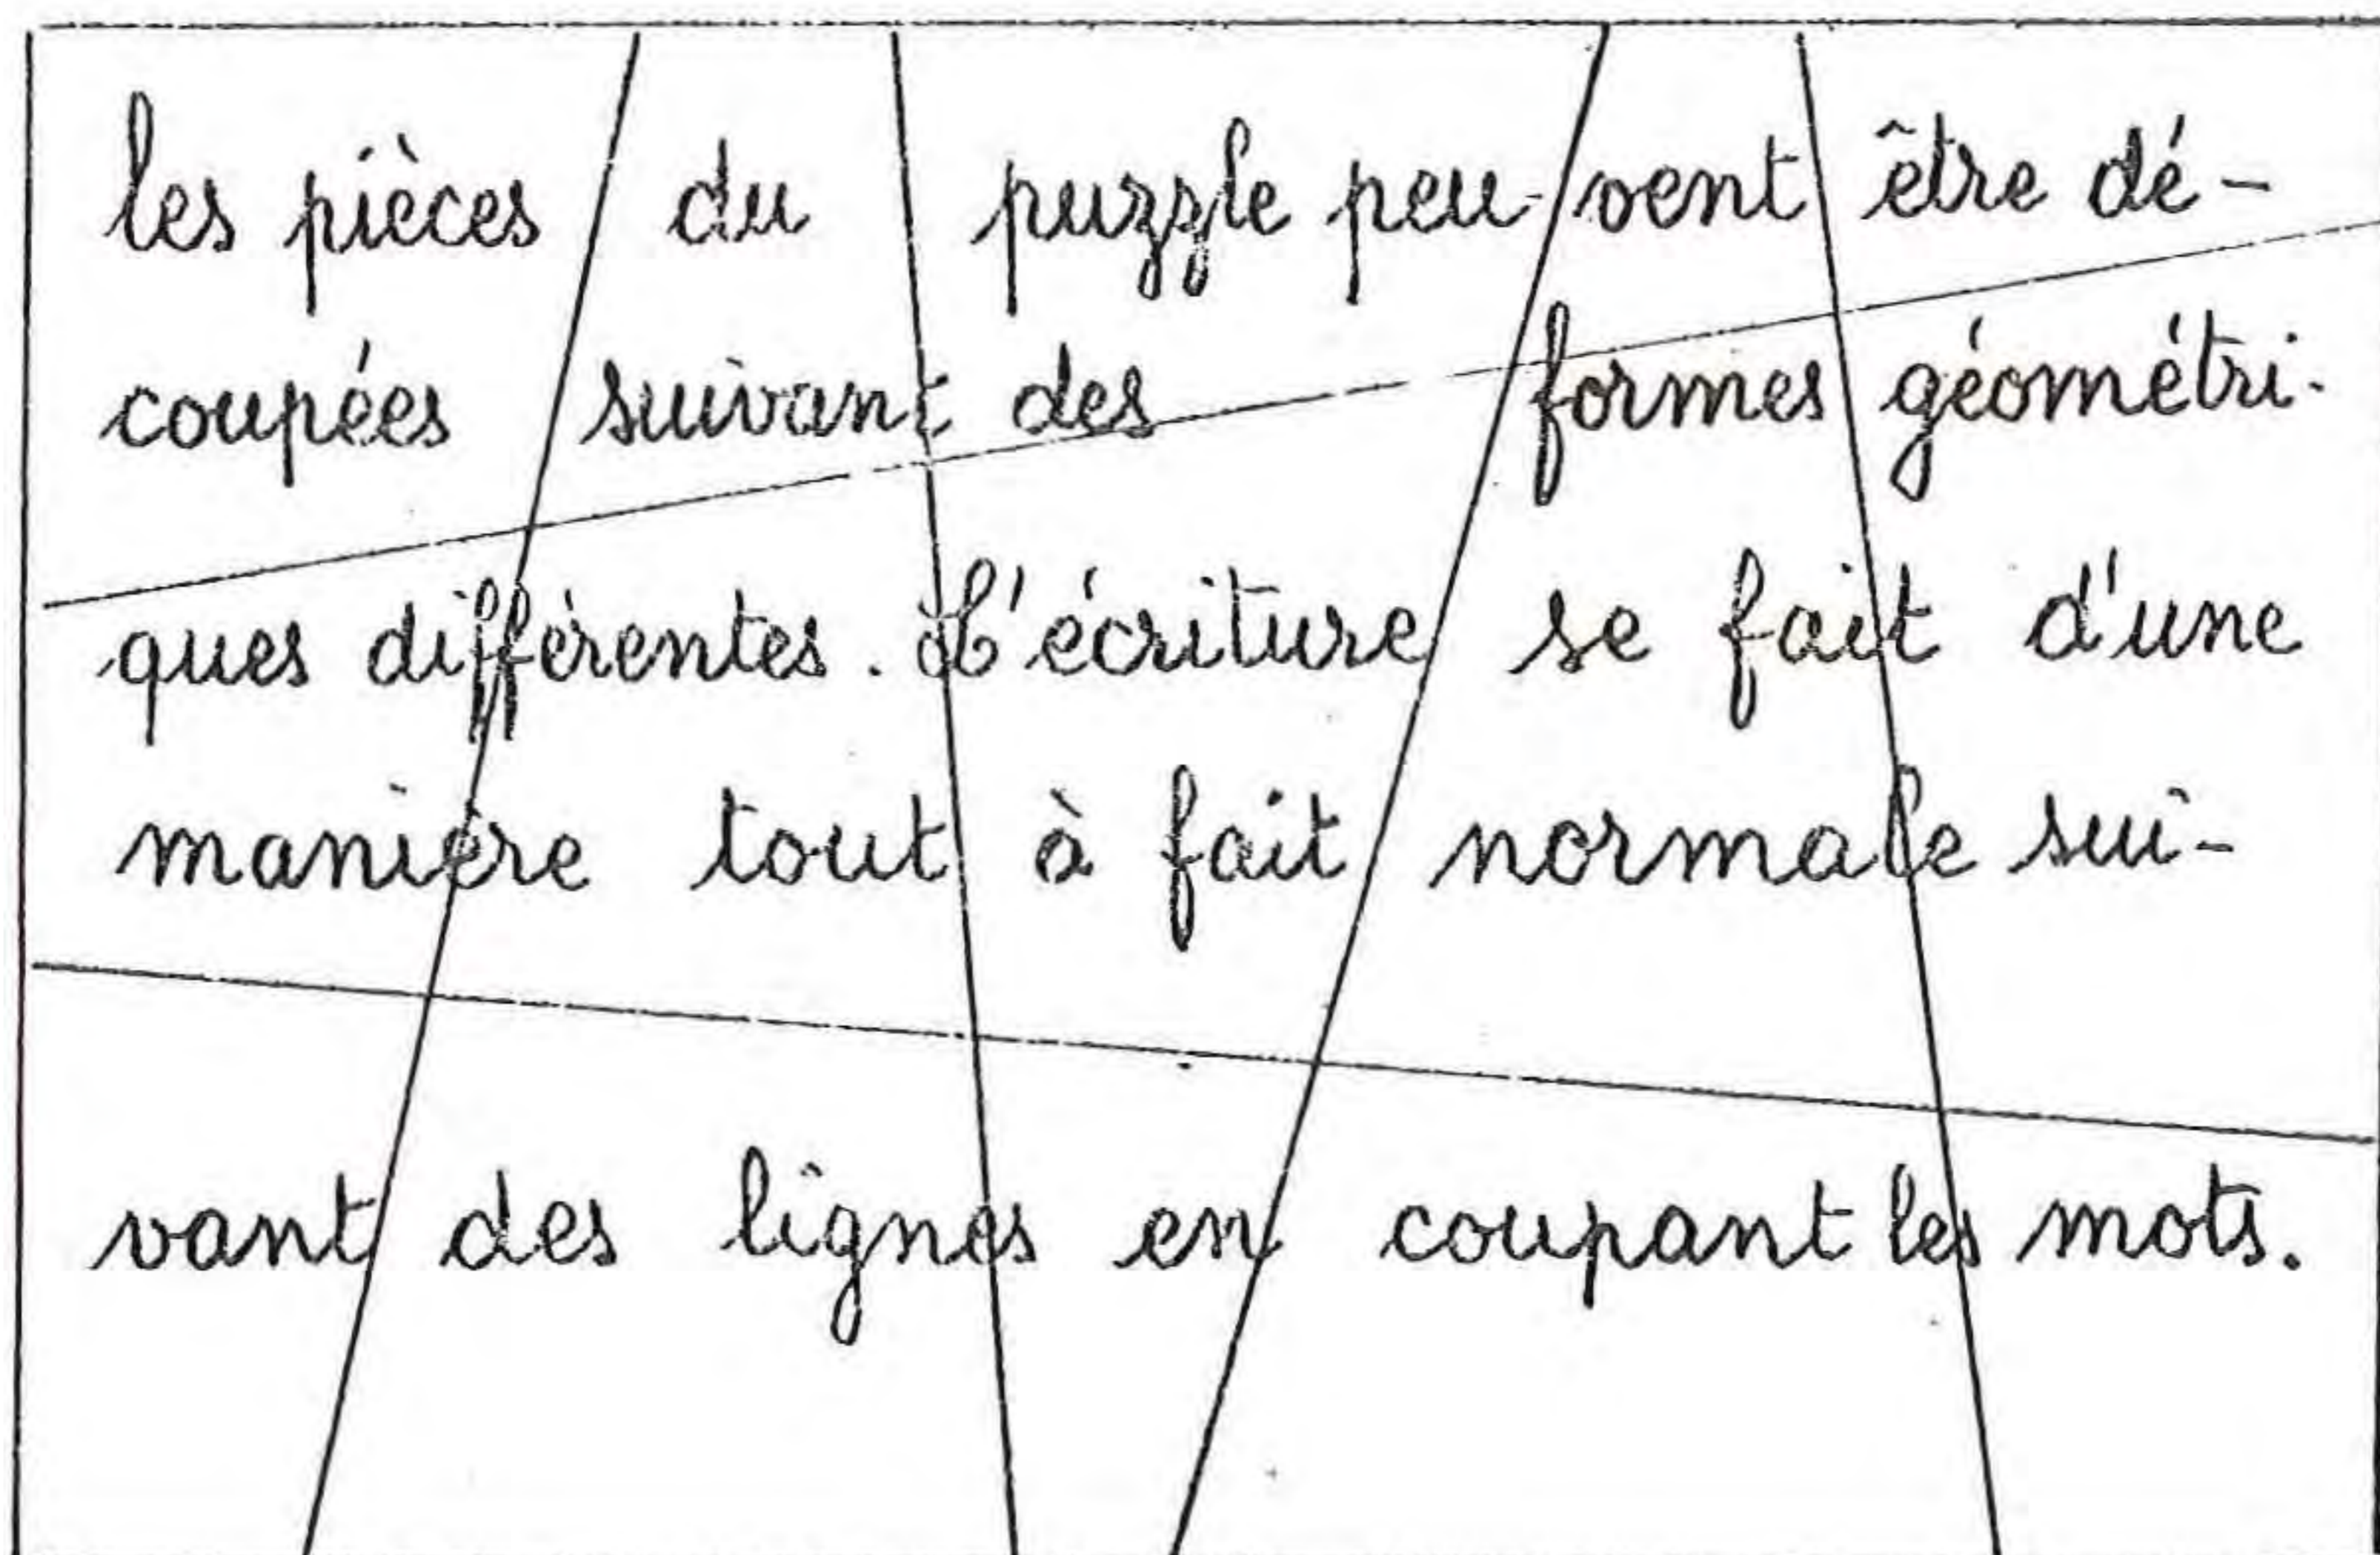 les pièces du puzzle peu-vent être dé-
coupées suivant des formes géométri-
ques différentes. L'écriture se fait d'une
manière tout à fait normale sui-
vant des lignes en coupant les mots.